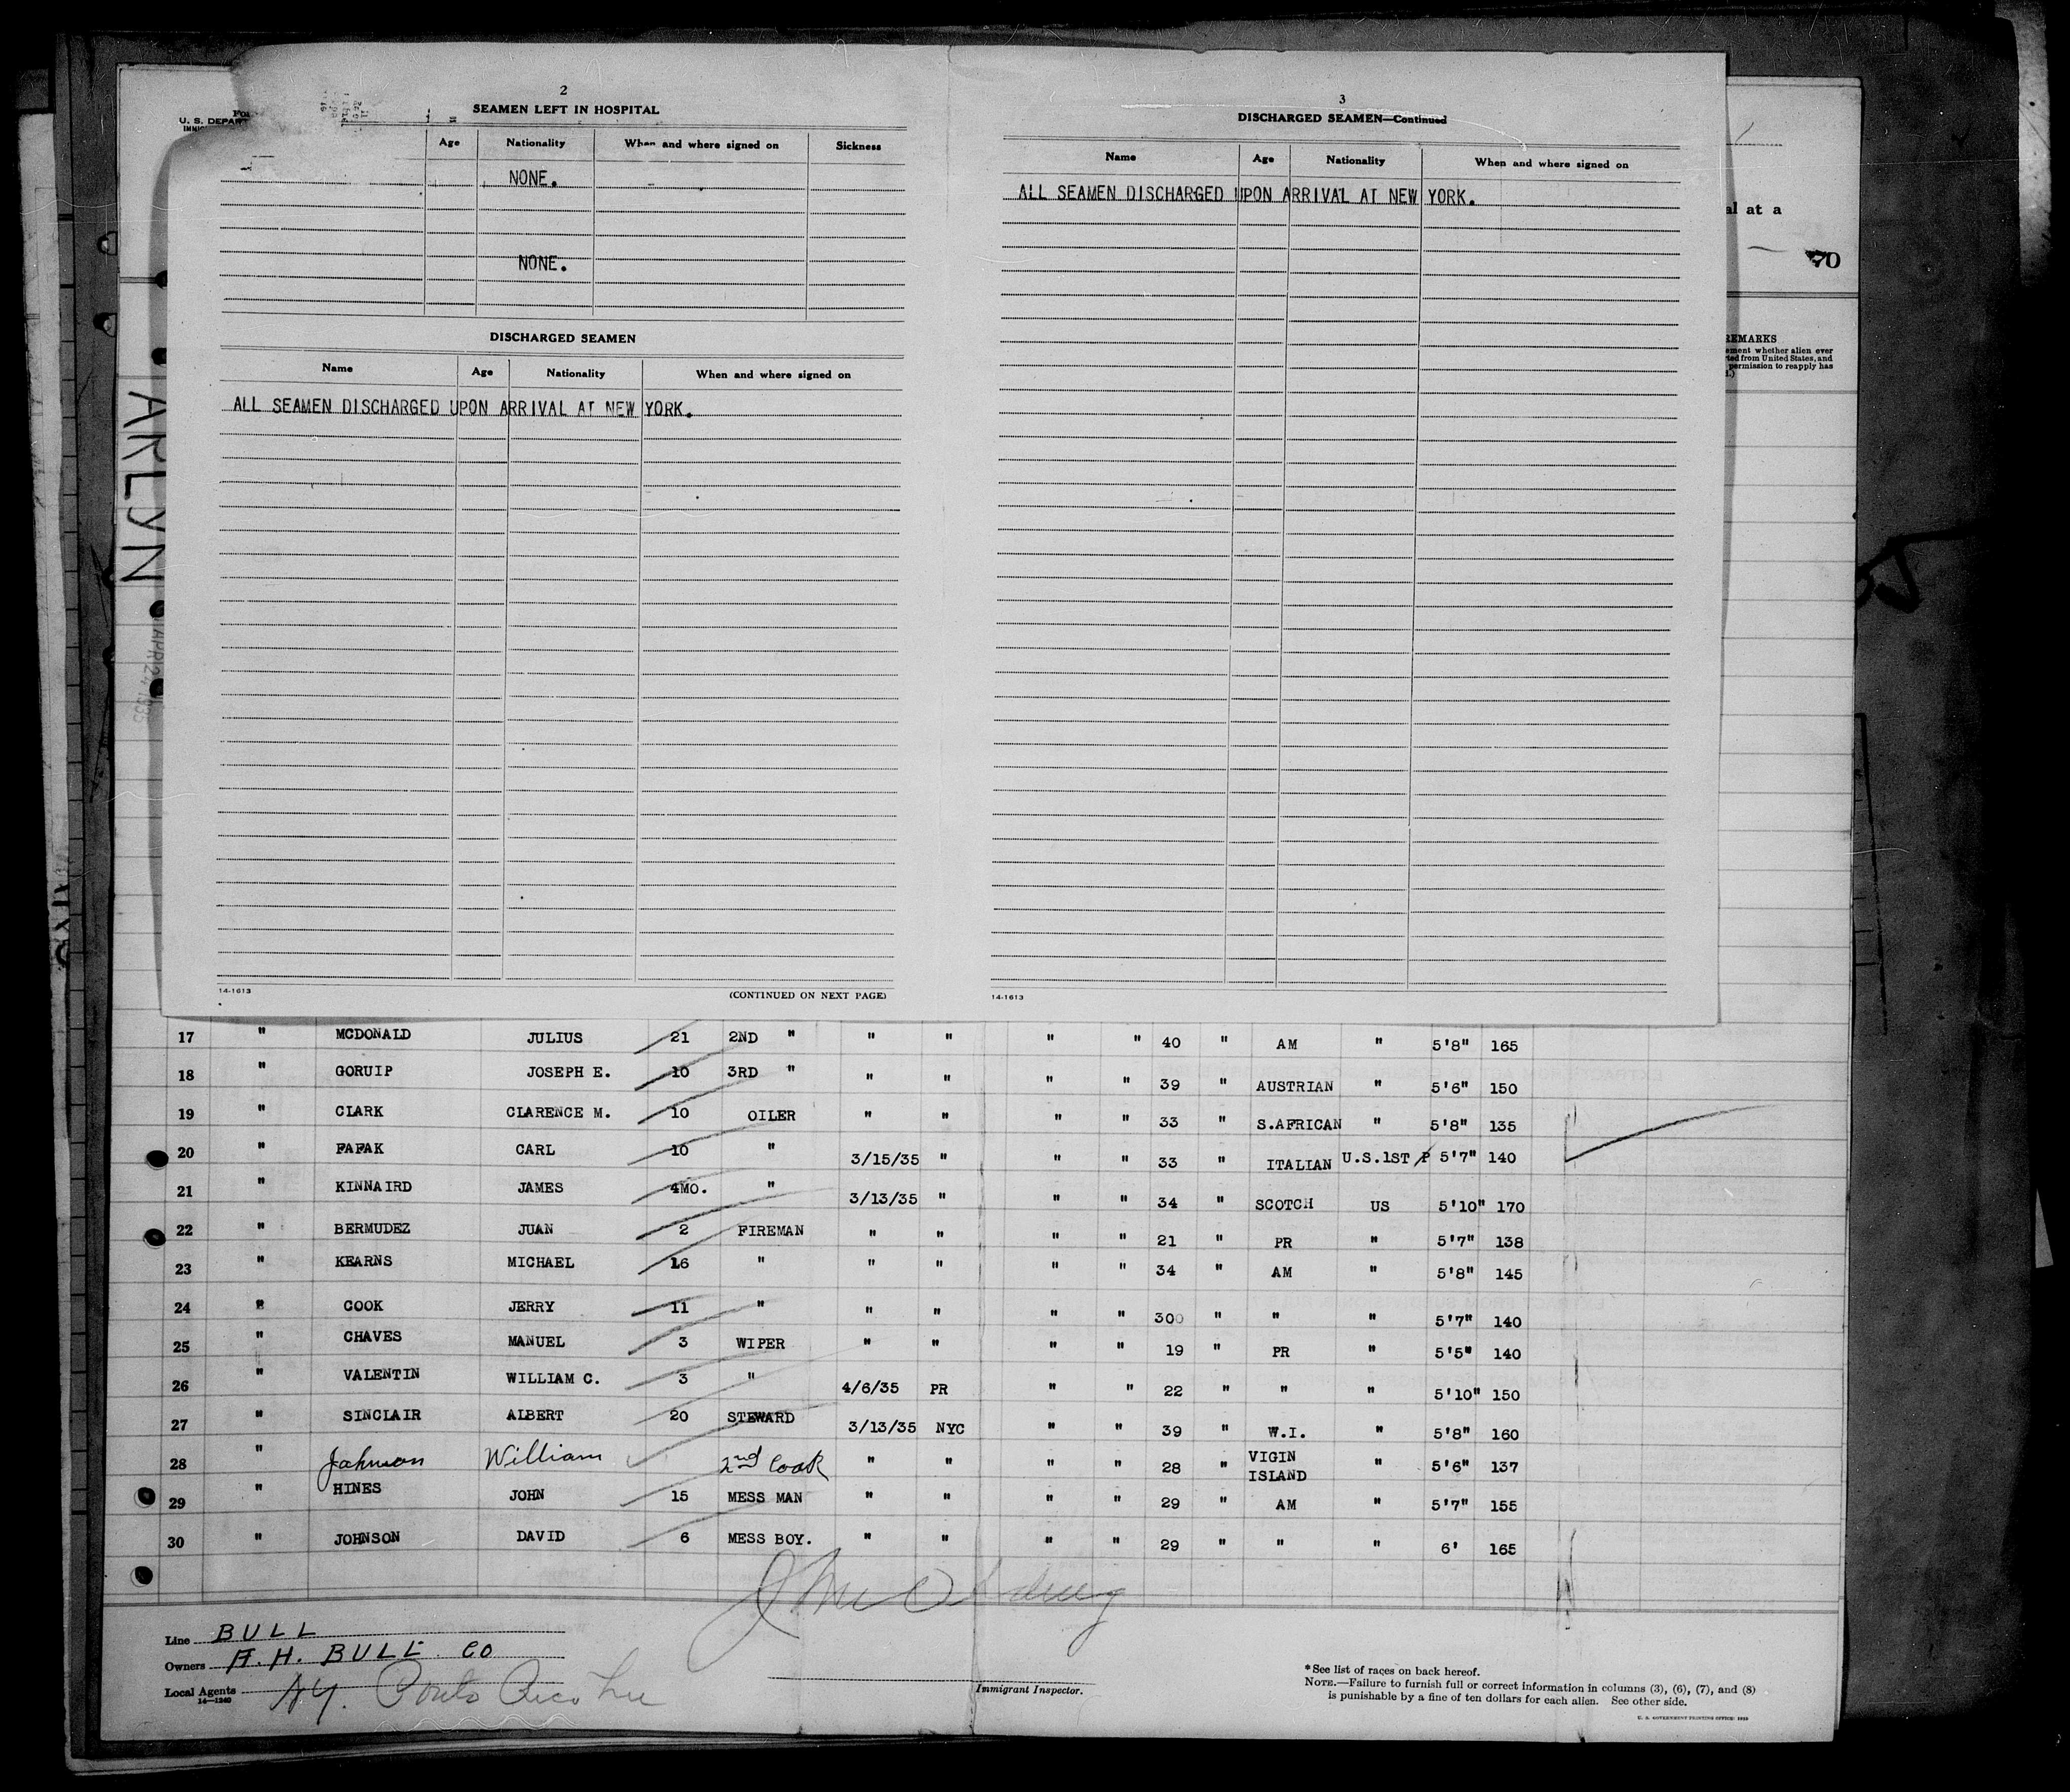 2
SEAMEN LEFT IN HOSPITAL
U. S. DEPAR
Age Nationality When and where signed on Sickness
NONE.
NONE.
DISCHARGED SEAMEN
Name Age Nationality When and where signed on
ALL SEAMEN DISCHARGED UPON ARRIVAL AT NEW YORK.
14-1613
(CONTINUED ON NEXT PAGE)
3
DISCHARGED SEAMEN—Continued
Name Age Nationality When and where signed on
ALL SEAMEN DISCHARGED UPON ARRIVAL AT NEW YORK.
14-1613
al at a
70
REMARKS
ement whether alien ever
ted from United States, and
permission to reapply has
ARLYN
APR 24 1935
17 " MCDONALD JULIUS 21 2ND " " " " " 40 " AM " 5'8" 165
18 " GORUIP JOSEPH E. 10 3RD " " " " " 39 " AUSTRIAN " 5'6" 150
19 " CLARK CLARENCE M. 10 OILER " " " " 33 " S.AFRICAN " 5'8" 135
20 " PAPAK CARL 10 " 3/15/35 " " " 33 " ITALIAN U.S.1ST P 5'7" 140
21 " KINNAIRD JAMES 4MO. " 3/13/35 " " " 34 " SCOTCH US 5'10" 170
22 " BERMUDEZ JUAN 2 FIREMAN " " " " 21 " PR " 5'7" 138
23 " KEARNS MICHAEL 16 " " " " " 34 " AM " 5'8" 145
24 " COOK JERRY 11 " " " " " 300 " " " 5'7" 140
25 " CHAVES MANUEL 3 WIPER " " " " 19 " PR " 5'5" 140
26 " VALENTIN WILLIAM C. 3 " 4/6/35 PR " " 22 " " " 5'10" 150
27 " SINCLAIR ALBERT 20 STEWARD 3/13/35 NYC " " 39 " W.I. " 5'8" 160
28 " Johnson William 2nd Cook " " " " 28 " VIGIN ISLAND " 5'6" 137
29 " HINES JOHN 15 MESS MAN " " " " 29 " AM " 5'7" 155
30 " JOHNSON DAVID 6 MESS BOY. " " " " 29 " " " 6' 165
Line BULL
Owners A. H. BULL CO
Local Agents NY. Porto Rico Line
14—1240
Immigrant Inspector.
*See list of races on back hereof.
NOTE.—Failure to furnish full or correct information in columns (3), (6), (7), and (8)
is punishable by a fine of ten dollars for each alien. See other side.